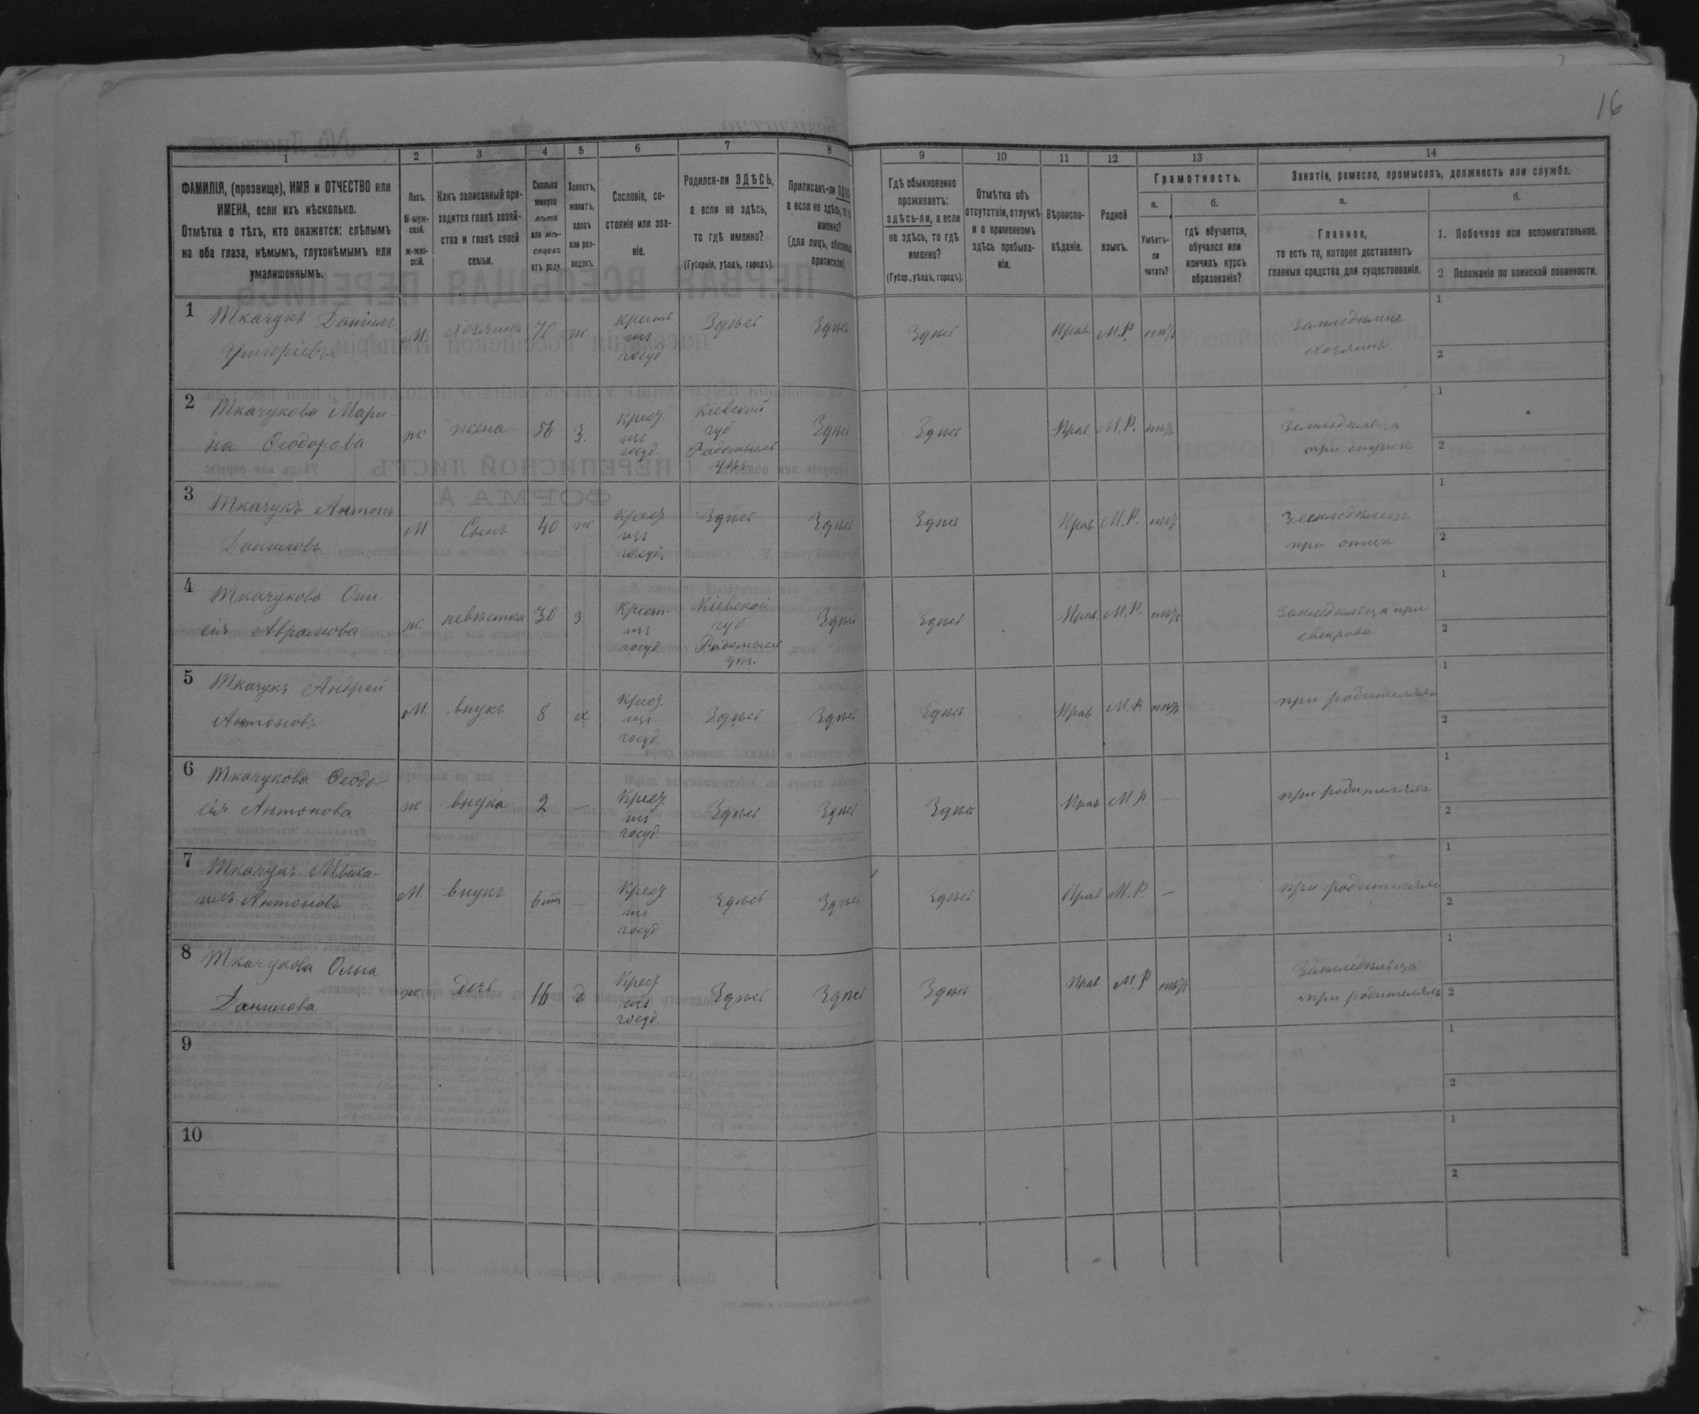 16
1 2 3 4 5 6 7 8 9 10 11 12 13 14
ФАМИЛІЯ, (прозвище), ИМЯ и ОТЧЕСТВО или
ИМЕНА, если ихъ нѣсколько.
Отмѣтка о тѣхъ, кто окажется: слѣпымъ
на оба глаза, нѣмымъ, глухонѣмымъ или
умалишеннымъ.
Полъ.
М-муж-
ской.
ж-жен-
скій.
Какъ записанный при-
ходится главѣ хозяй-
ства и главѣ своей
семьи.
Сколько
минуло
лѣтъ
или мѣ-
сяцевъ
отъ роду.
Холостъ,
женатъ,
вдовъ
или раз-
веденъ.
Сословіе, со-
стояніе или зва-
ніе.
Родился-ли ЗДѢСЬ,
а если не здѣсь,
то гдѣ именно?
(Губернія, уѣздъ, городъ).
Приписанъ-ли
а если не здѣсь, то
именно?
(для лицъ,
Гдѣ обыкновенно
проживаетъ:
здѣсь-ли, а если
не здѣсь, то гдѣ
именно?
(Губер., уѣздъ, городъ).
Отмѣтка объ
отсутствіи, отлучкѣ
и о временномъ
здѣсь пребыва-
ніи.
Вѣроиспо-
вѣданіе.
Родной
языкъ.
Грамотность.
а.
Умѣетъ-
ли
читать?
б.
гдѣ обучается,
обучался или
кончилъ курсъ
образованія?
Занятіе, ремесло, промыселъ, должность или служба.
а.
Главное,
то есть то, которое доставляетъ
главныя средства для существованія.
б.
1. Побочное или вспомогательное.
2 Положеніе по воинской повинности.
1 Ткачукъ Даніилъ
Григоріевъ
М. Хозяинъ 70 ж Крест. изъ госуд. Здѣсь Здѣсь Здѣсь Прав М.Р. нѣтъ
хозяинъ
1
2
2 Ткачукова Мари
на Ѳеодорова
ж жена 56 З. Крест. изъ госуд.
Кіевской
губ
Радомысль
уѣз.
Здѣсь Здѣсь Прав М.Р. нѣтъ
1
2
3 Ткачукъ Антонъ
Даниловъ
М Сынъ 40 ж Крест. изъ госуд. Здѣсь Здѣсь Здѣсь Прав М.Р. нѣтъ
Земледѣлецъ
при отцѣ
1
2
4 Ткачукова
Аврамова
ж невѣстка 30 З Крест. изъ госуд.
Кіевской
губ
Радомысл
уѣз.
Здѣсь Здѣсь Прав М.Р. нѣтъ
при
свекрова
1
2
5 Ткачукъ Андрей
Антоновъ
М. внукъ 8 х Крест. изъ госуд. Здѣсь Здѣсь Здѣсь Прав М.Р. нѣтъ
при родителяхъ
1
2
6 Ткачукова Ѳеодо-
сія Антонова
ж внука 2 — Крест. изъ госуд. Здѣсь Здѣсь Здѣсь Прав М.Р. —
при родителяхъ
1
2
7 Ткачукъ Миха-
илъ Антоновъ
М. внукъ — Крест. изъ госуд. Здѣсь Здѣсь Здѣсь Прав М.Р. —
при родителяхъ
1
2
8 Ткачукова Ольга
Данилова
ж Дочь 16 д Крест. изъ госуд. Здѣсь Здѣсь Здѣсь Прав М.Р. нѣтъ
при родителяхъ
1
2
9
1
2
10
1
2